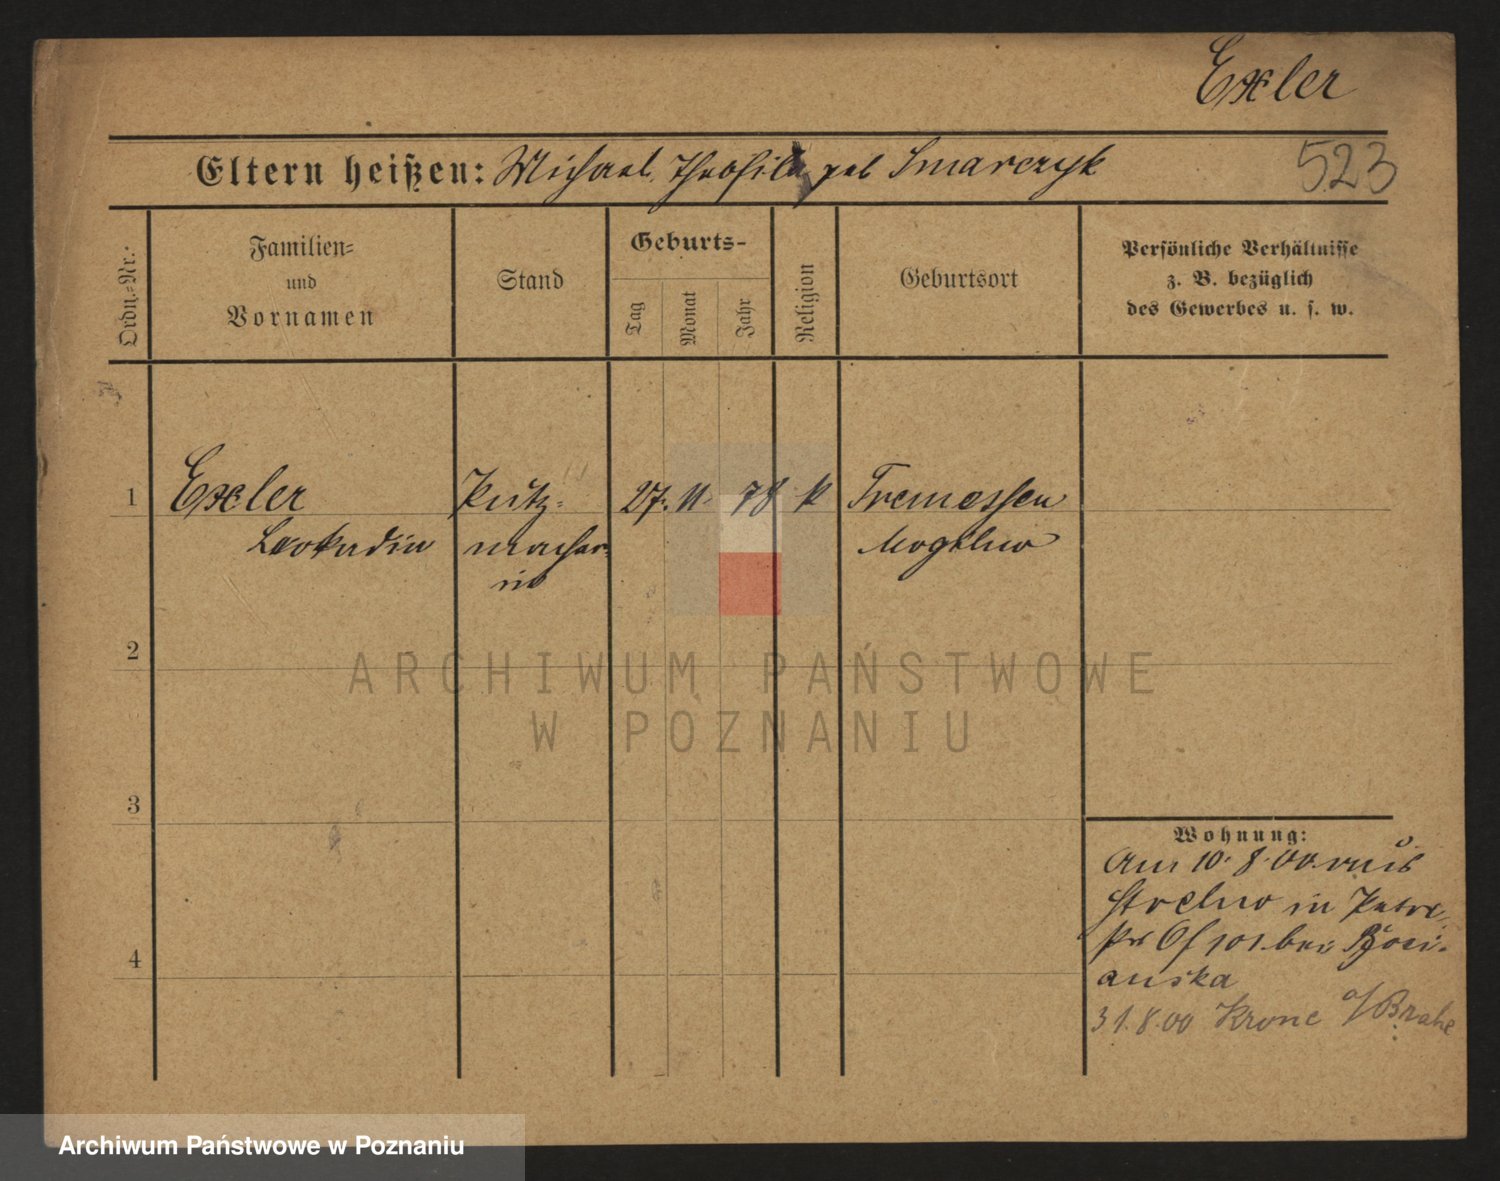 Exler
Eltern heißen: Michael, Theofila geb Smarczyk
523
Ordn.=Nr.
Familien=
und
Vornamen
Stand
Geburts-
Tag
Monat
Jahr
Religion
Geburtsort
Persönliche Verhältnisse
z. B. bezüglich
des Gewerbes u. s. w.
1 Exler Putz= 27. 11. 78 k Tremessen
Leokadia macher= Mogilno
in
2
ARCHIWUM PAŃSTWOWE
W POZNANIU
3
Wohnung:
Am 10. 8. 00 aus
Strelno in
101 bei
anska
4
31.8.00 Krone a/Brahe
Archiwum Państwowe w Poznaniu